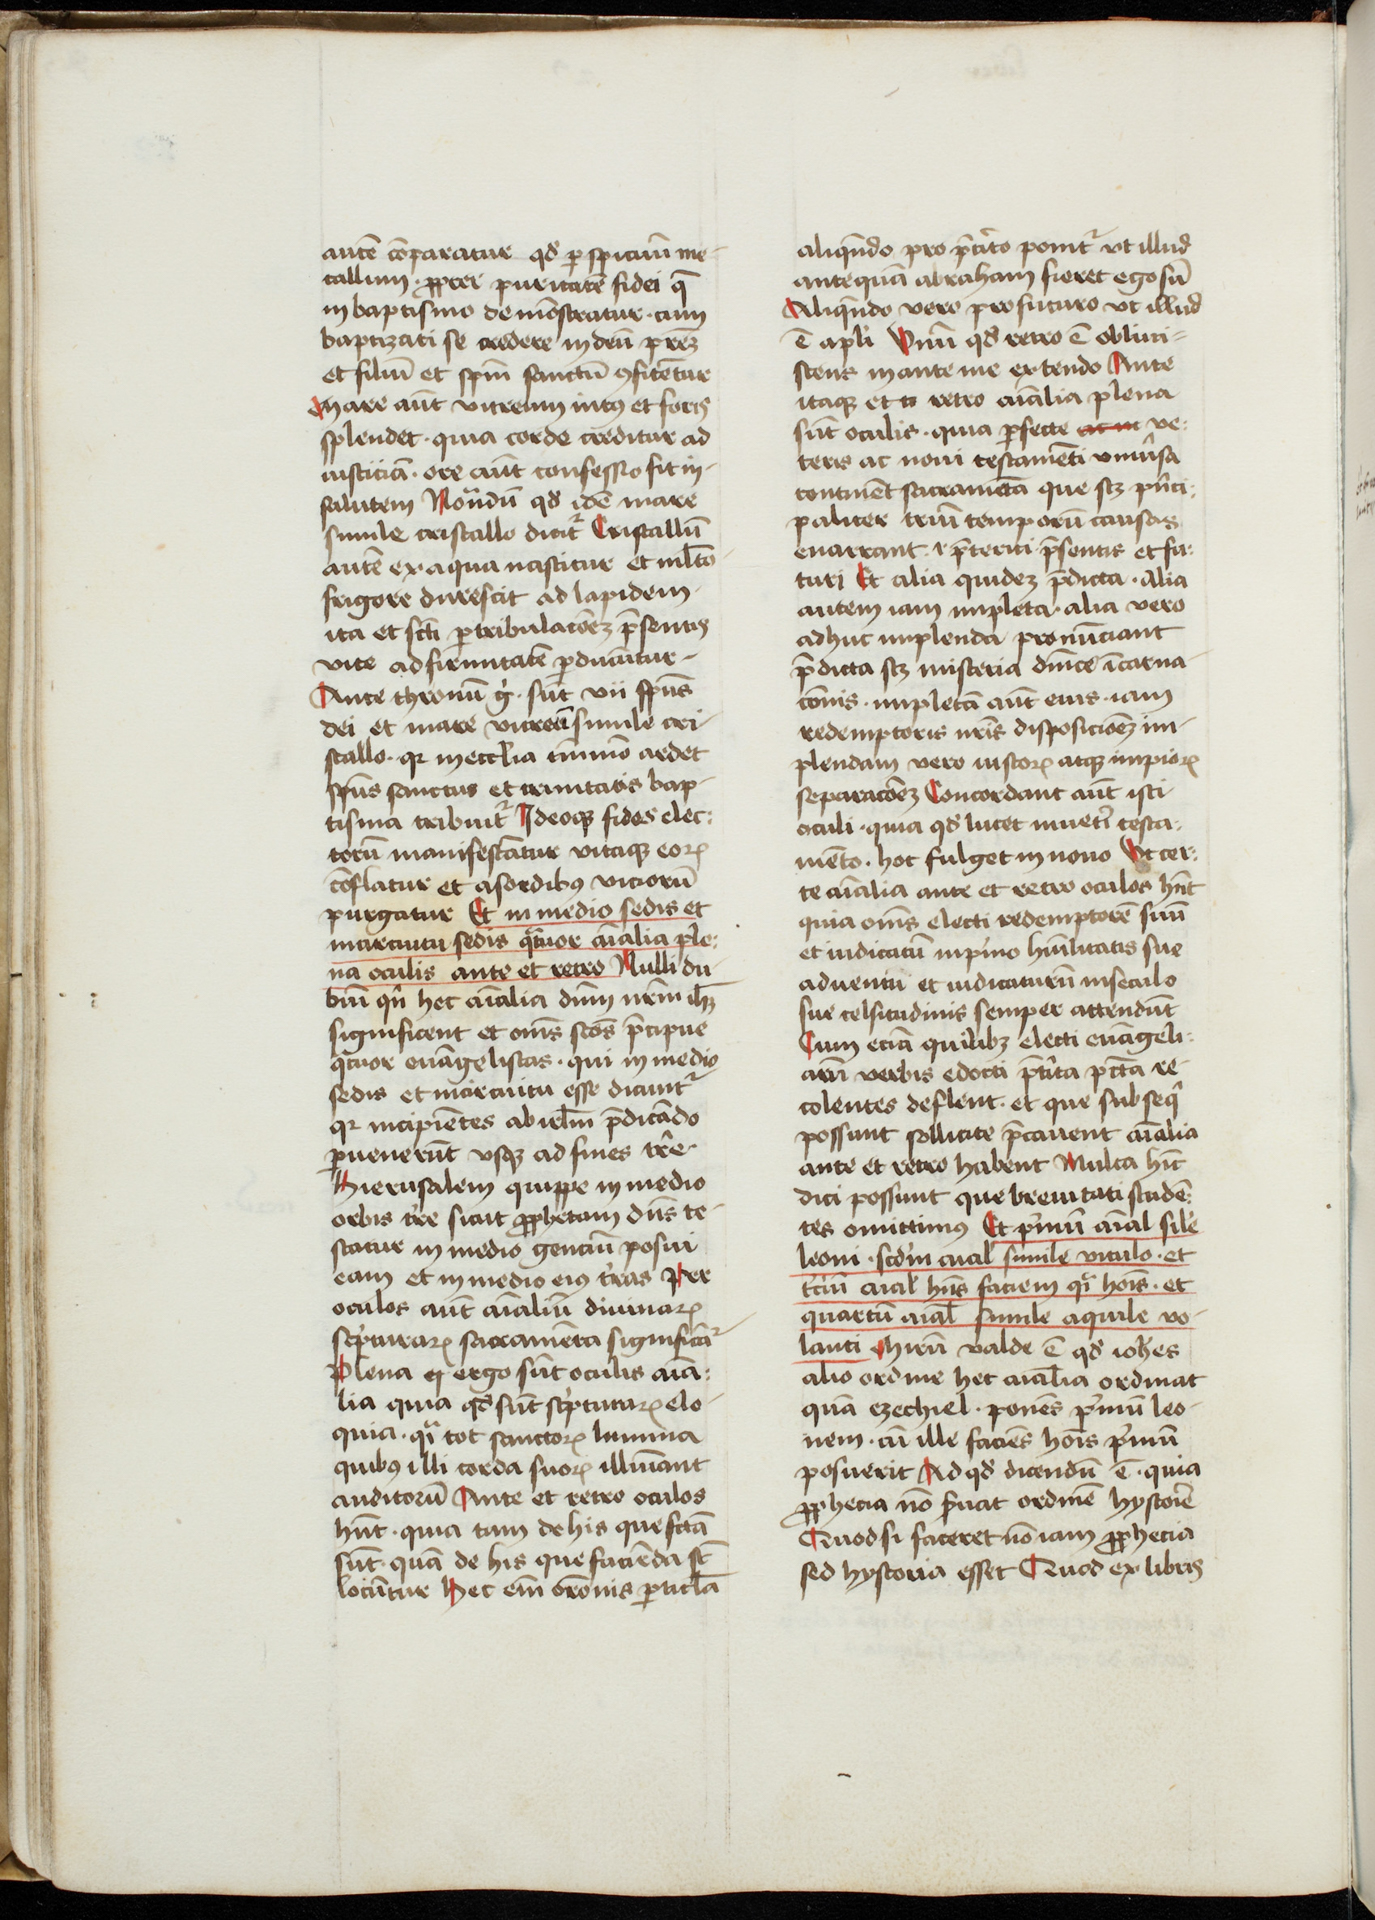 autē cōparatur qđ ꝑspicuū me-
tallum ꝓpter puritatē fidei q̄
in baptismo demōstratur · cum
baptizati se credere in deū prēz
et filiū et spm̄ sanctū ꝯfitentur
Mare aūt vitreum intꝰ et foris
splendet · quia corde creditur ad
iusticiā · ore aūt confessio fit in
salutem Notandū qđ idē mare
simile cristallo dicit᷑ Cristallū
autē ex aqua nascitur et ml̄to
frigore durescit ad lapidem
ita et scī ꝑ tribulacōez p̄sentis
vite ad firmitatē ꝑducūtur
Ante thronū g̊ · sūt vii spūs
dei et mare vitreū simile cri-
stallo · qr in eccl̄ia in īmo ardet
spūs sanctus et trinitatis bap-
tisma tribuit᷑ Ideoqꝫ fides elec:
torū manifestatur vitaqꝫ eoꝝ
cōflatur et a sordibꝰ viciorū
purgatur Et in medio sedis et
in circuitu sedis qͣtuor aīalia ple:
na oculis ante et retro Nulli du-
biū qn̄ hec aīalia dūm nrm̄ ihm̄
significent et om̄s scōs p̄cipue
qͣtuor euāgelistas · qui in medio
sedis et in circuitu esse dicunt᷑
qr incipiētes ab ierl̄m p̄dicādo
ꝑuenerūt vsqꝫ ad fines tr̄e
Hierusalem quippe in medio
orbis tr̄e sicut ꝓphetam dn̄s te-
statur in medio genciū posui
eam et in medio eiꝰ tr̄as Per
oculos aūt aīaliū diuinaꝝ
sc̄pturaꝝ sacramēta significāt᷑
Plena ergo sūt oculis aīa:
lia quia qđ sūt sc̄pturaꝝ elo-
quia · qͣi tot sanctoꝝ lumina
quibꝰ illi corda suoꝝ illumīant
auditorū Ante et retro oculos
hn̄t · quia tam de his que fcā
sūt · quā de his que faciēda st̄
locūtur Hec em̄ or̄onis ꝑticl̄a
aliqn̄do pro p̄cito ponit᷑ vt illud
antequā abraham fieret ego sū
Aliqn̄do vero pro futuro vt illud
ē apl̄i Vnū qđ retro ē obliui-
scens in ante me extendo Ante
itaqꝫ et retro aīalia plena
sūt oculis · quia ꝑfecte ve:
teris ac noui testamēti vniūsa
continēt sacramēta que scꝫ p̄nci:
paliter triū temporū causas
enarrant · p̄teriti p̄sentis et fu:
turi Et alia quidez p̄dicta · alia
autem iam impleta · alia vero
adhuc implenda pronūciant
p̄dicta scꝫ misteria dn̄ice īcarna-
cōnis · impletā aūt eius · iam
redemptoris nr̄is disposicōez im-
plendam vero iustoꝝ atqꝫ impioꝝ
separacōez Concordant aūt isti
oculi · quia qđ lucet in vet̄i testa:
mēto · hoc fulget in nouo Vt cer:
te aīalia ante et retro oculos hn̄t
quia om̄s electi redemptorē suū
et iudicatū in p̄mo hūilitatis sue
aduentu et iudicaturū in seculo
sue celsitudinis semper attendūt
Cum eciā quilibꝫ electi euāgeli:
arū verbis edocti p̄t̄ita pctā re-
colentes deflent · et que subseq̄
possunt sollicite p̄cauent aīalia
ante et retro habent Multa hīc
dici possunt que breuitati studē:
tes omittimꝰ Et p̄mū aīal sil̄e
leoni · scdm̄ aīal simile vitulo · et
t̄ciū aīal hn̄s faciem qͣi hoīs · et
quartū aīal simile aquile vo-
lanti Mirū valde ē qđ ioh̄es
alio ordine hec aīalia ordinat
quā ezechiel · ponēs p̄mū leo-
nem · cū ille faciēs hoīs p̄mū
posuerit Ad qđ dicendū ē · quia
ꝓphecia nō s̄uat ordinē hystorie
Quod si faceret nō iam ꝓphecia
sed hystoria esset Quod ex libris